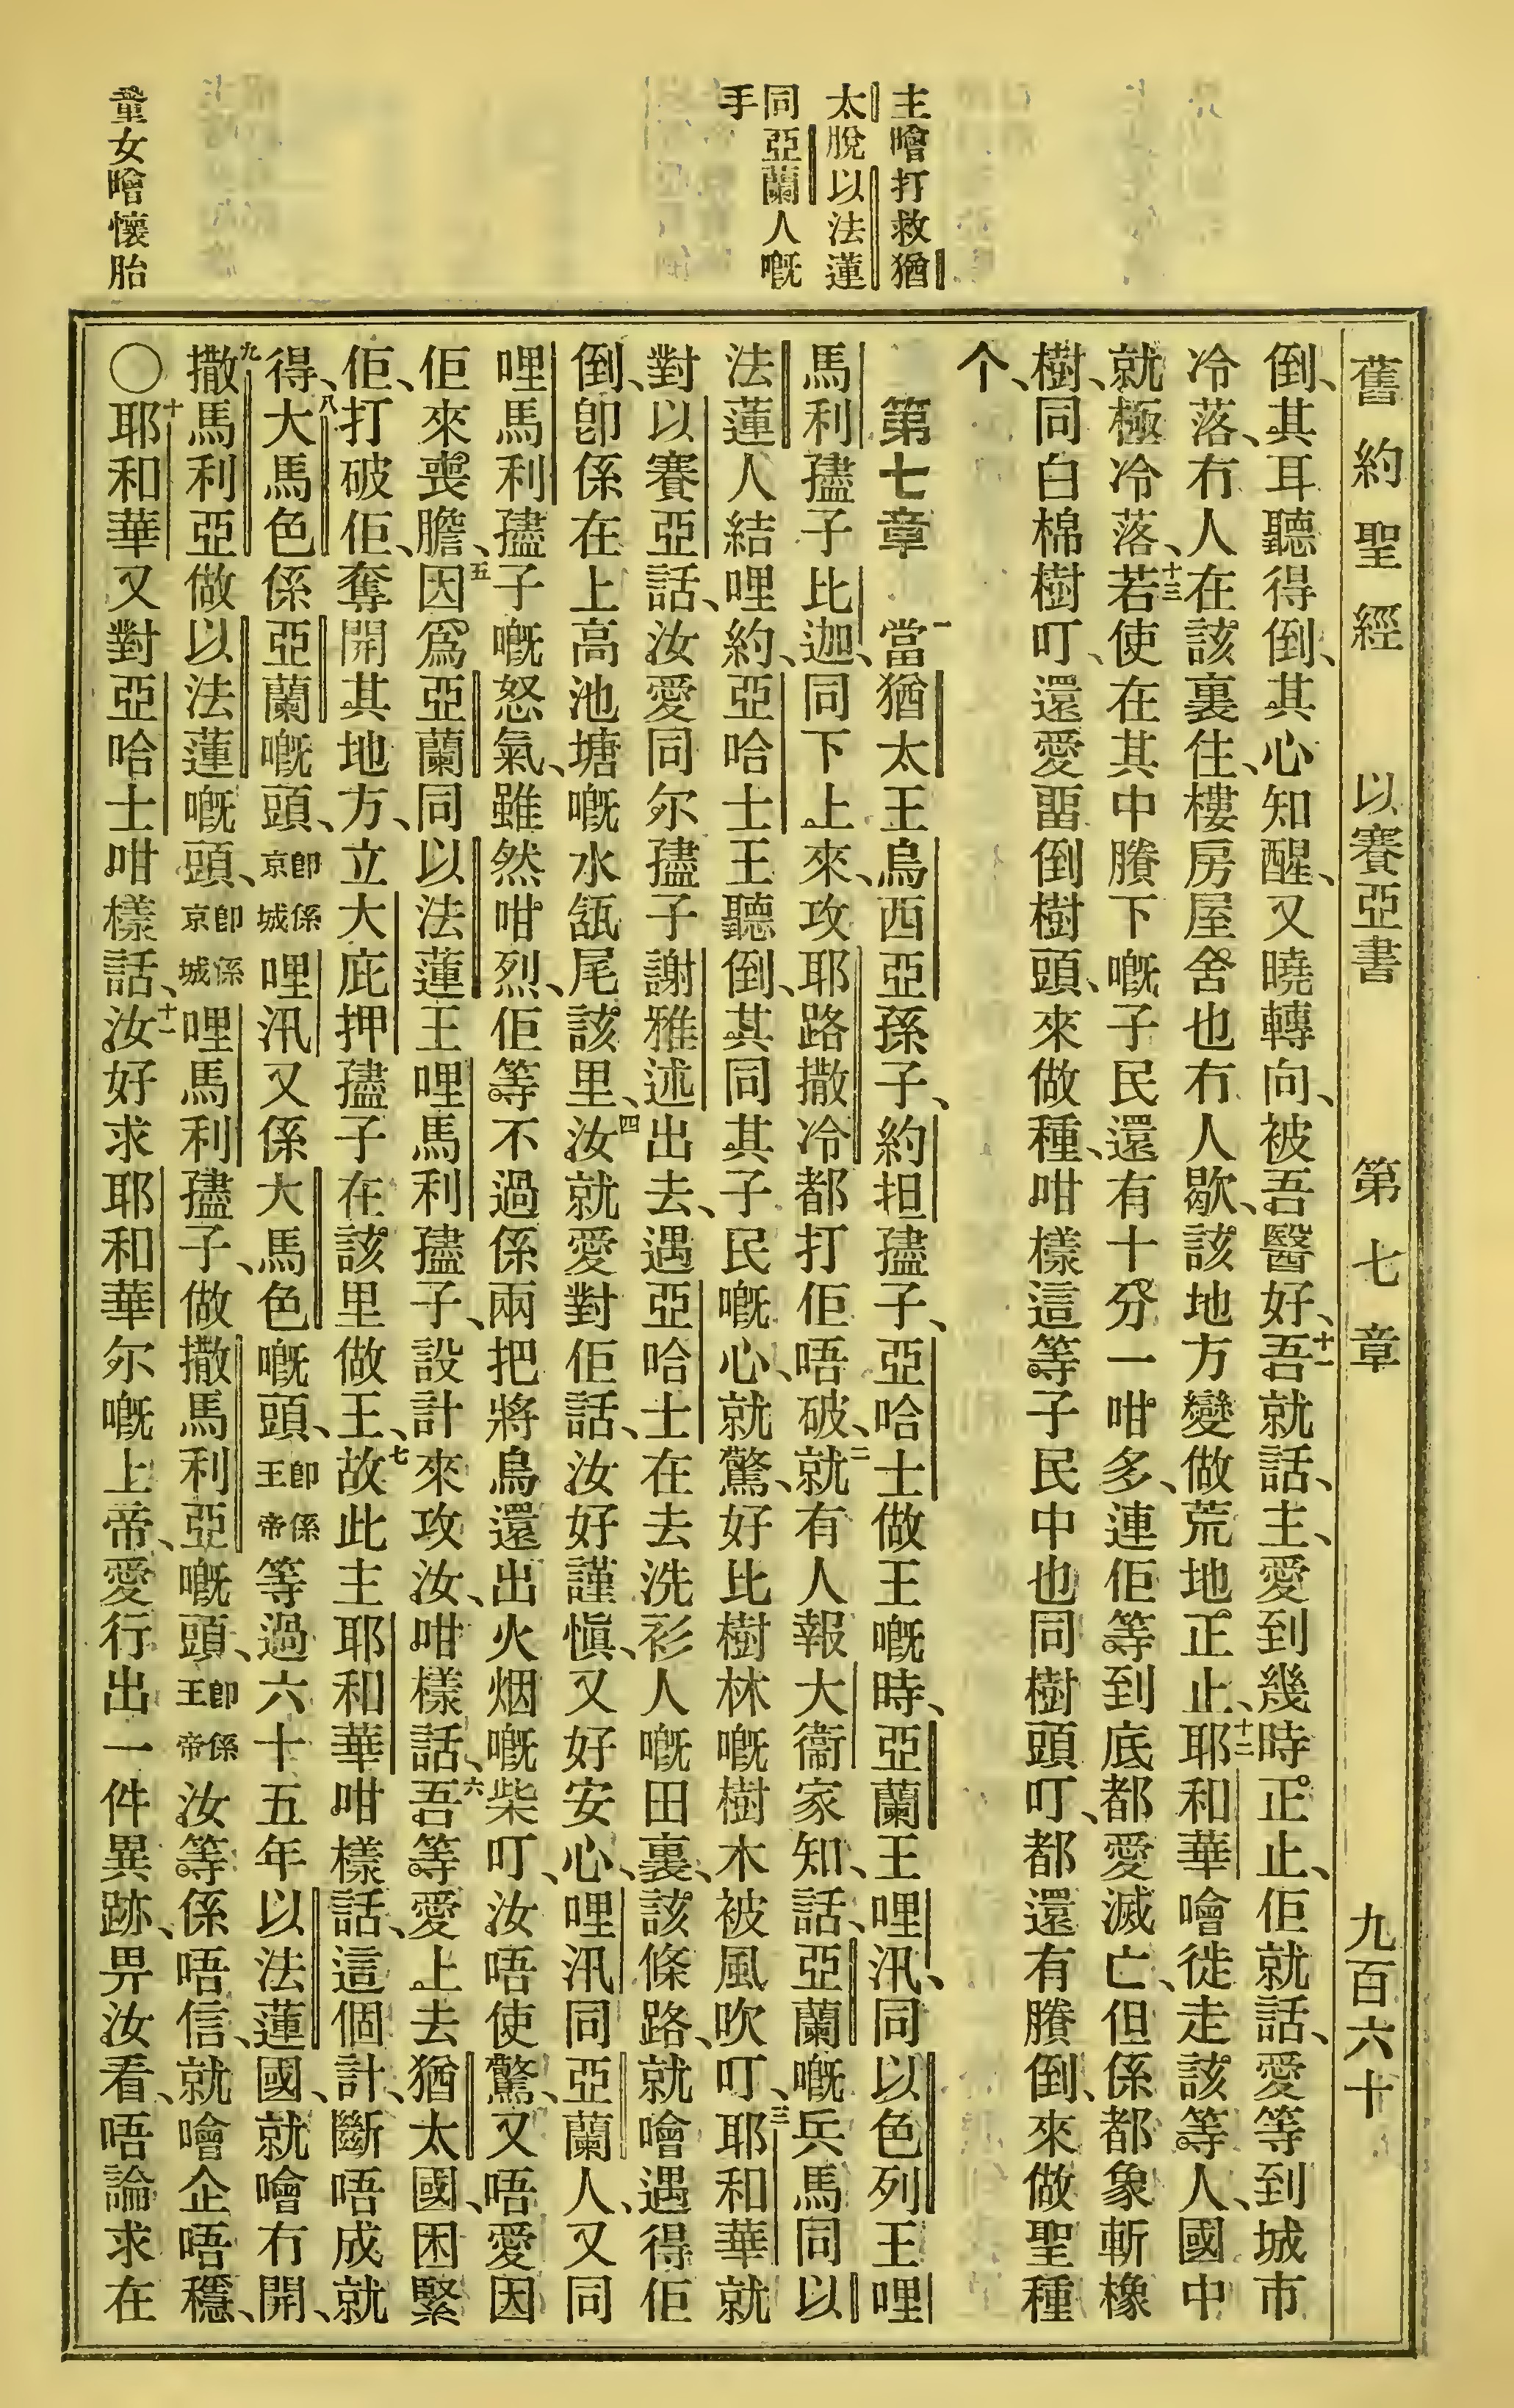 舊約聖經　以賽亞書　第七章　九百六十
主噲打救猶
太脫以法蓮
同亞蘭人嘅
手
童女噲懷胎
倒、其耳聽得倒、其心知醒、又曉轉向、被吾醫好、十一吾就話、主、愛到幾時正止、佢就話、愛等到城市
冷落、冇人在該裏住、樓房屋舍也冇人歇、該地方變做荒地正止、十二耶和華噲徙走該等人、國中
就極冷落、十三若使在其中賸下嘅子民還有十分一咁多、連佢等到底都愛滅亡、但係都象斬橡
樹、同白棉樹叮、還愛畱倒樹頭、來做種、咁樣這等子民中也同樹頭叮、都還有賸倒、來做聖種
个、
第七章　一當猶太王烏西亞孫子、約担孻子、亞哈士做王嘅時、亞蘭王哩汛、同以色列王哩
馬利孻子比迦、同下上來、攻耶路撒冷都打佢唔破、二就有人報大衞家知、話、亞蘭嘅兵馬同以
法蓮人結哩約、亞哈士王聽倒、其同其子民嘅心、就驚、好比樹林嘅樹木被風吹叮、三耶和華就
對以賽亞話、汝愛同尔孻子謝雅述出去、遇亞哈士在去洗衫人嘅田裏、該條路、就噲遇得佢
倒、卽係在上高池塘嘅水瓴尾該里、四汝就愛對佢話、汝好謹愼、又好安心、哩汛同亞蘭人、又同
哩馬利孻子嘅怒氣、雖然咁烈、佢等不過係兩把將烏還出火烟嘅柴叮、汝唔使驚、又唔愛因
佢來喪膽、五因爲亞蘭同以法蓮王哩馬利孻子、設計來攻汝、咁樣話、六吾等愛上去猶太國、困緊
佢、打破佢、奪開其地方、立大庇押孻子在該里做王、七故此主耶和華咁樣話、這個計、斷唔成就
得、八大馬色係亞蘭嘅頭、卽係京城哩汛又係大馬色嘅頭、卽係王帝等過六十五年以法蓮國、就噲冇開、
九撒馬利亞做以法蓮嘅頭、卽係京城哩馬利孻子、做撒馬利亞嘅頭、卽係王帝汝等係唔信、就噲企唔穩、
〇十耶和華又對亞哈士咁樣話、十一汝好求耶和華尔嘅上帝、愛行出一件異跡、畀汝看、唔論求在